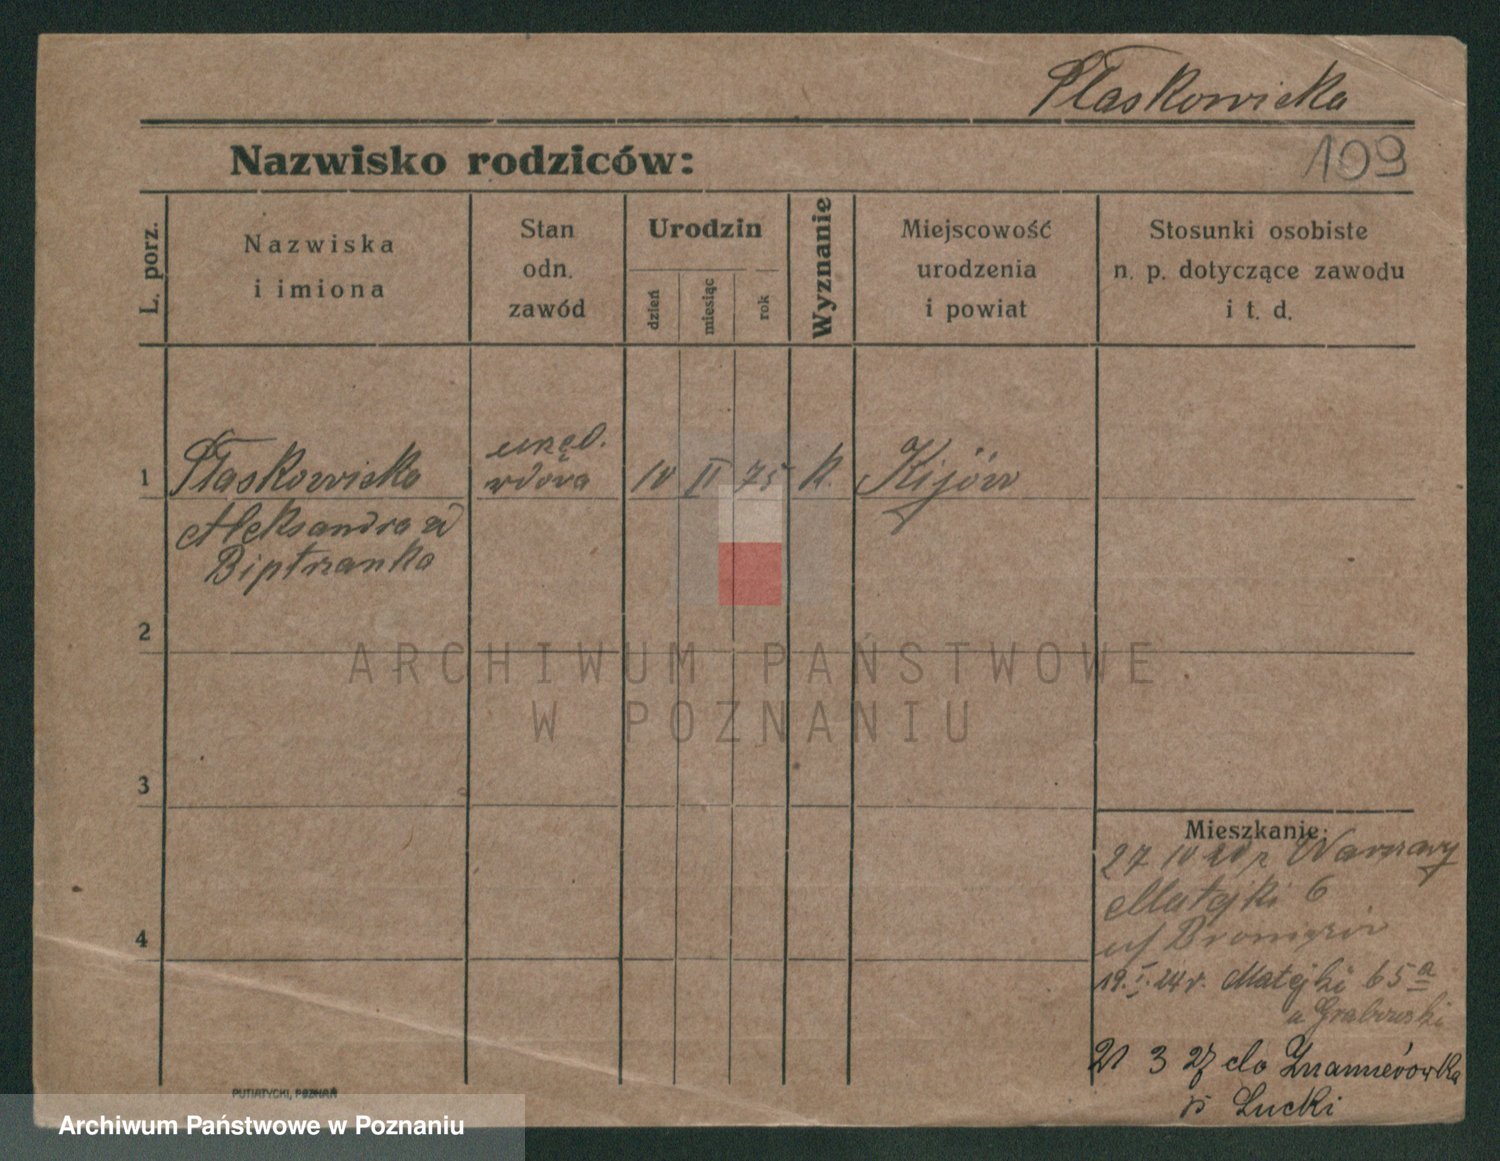 Płaskowicka
Nazwisko rodziców:
109
L. porz.
Nazwiska
i imiona
Stan
odn.
zawód
Urodzin
dzień
miesiąc
rok
Wyznanie
Miejscowość
urodzenia
i powiat
Stosunki osobiste
n. p. dotyczące zawodu
i t. d.
1
Płaskowicka
Aleksandra
wdowa
10 II 75
k.
Kijów
2
ARCHIWUM PAŃSTWOWE
W POZNANIU
3
Mieszkanie:
27 IV z Warszawy
Matejki 6
4
19. I. 24 r. Matejki 65 a
21 3 27 do
Łucki
PUTIATYCKI, POZNAŃ
Archiwum Państwowe w Poznaniu